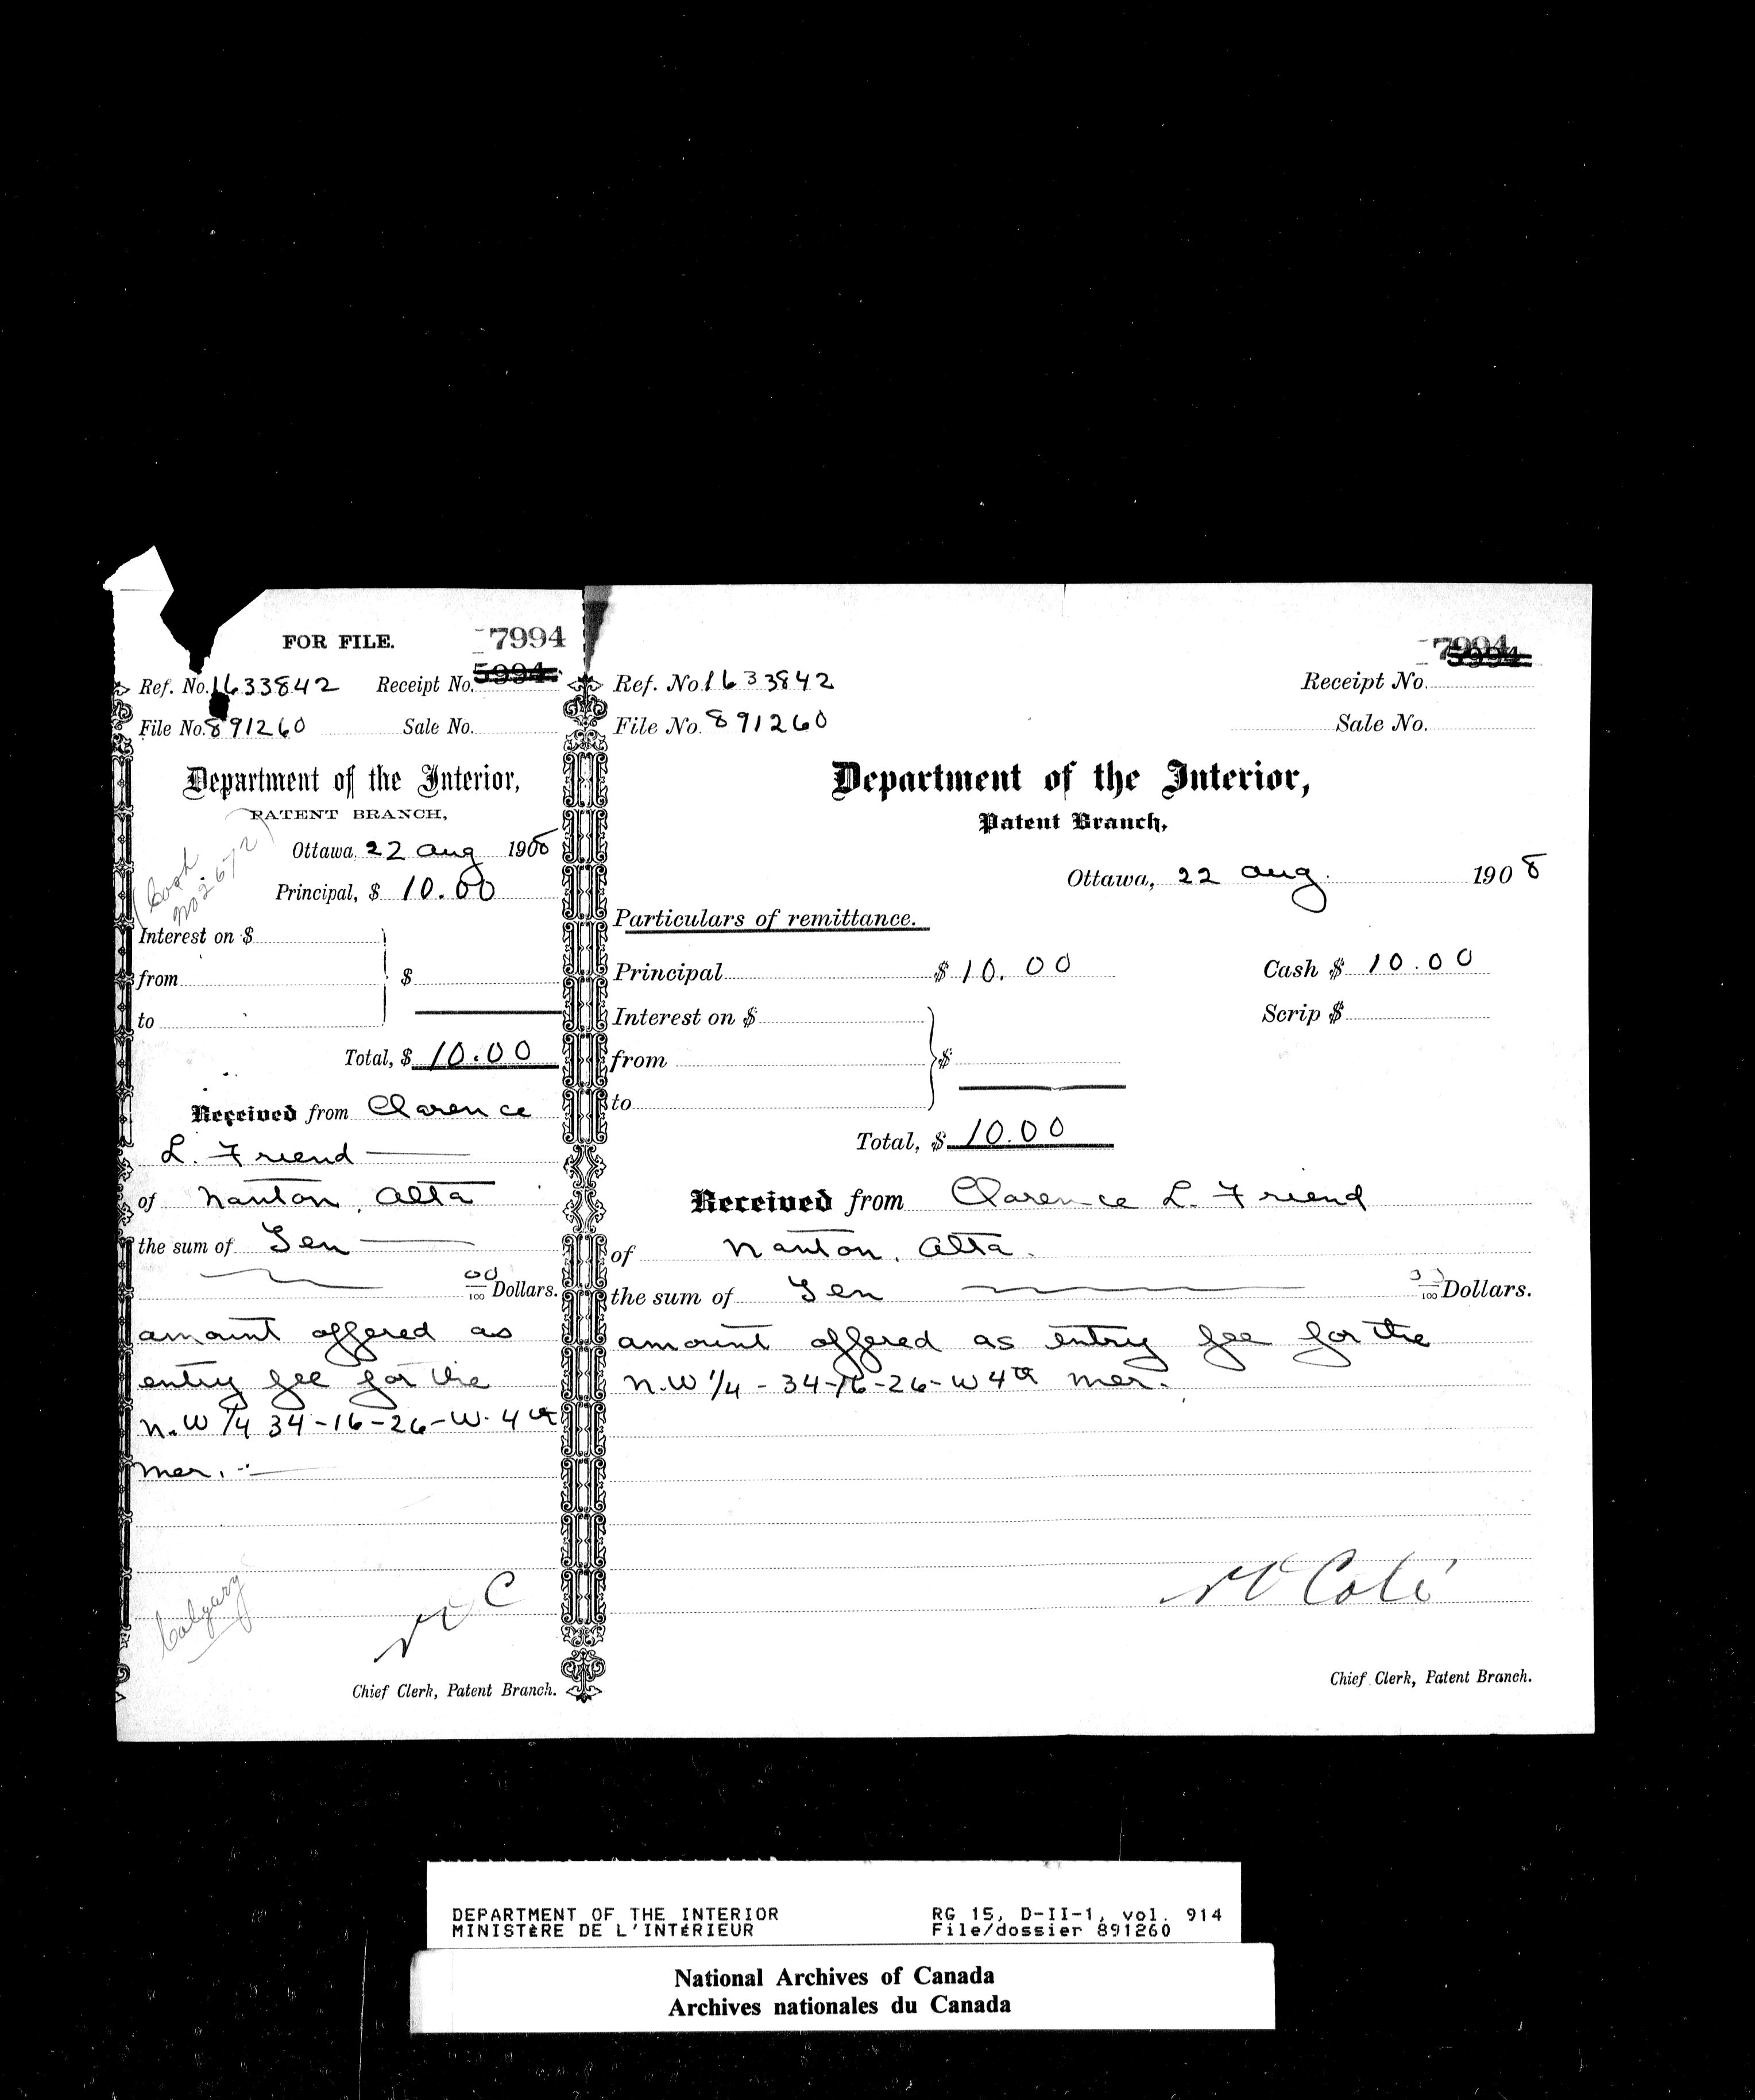 FOR FILE.
7994
Ref. No. 1633842 Receipt No. 5994
File No. 891260 Sale No.
Department of the Interior,
PATENT BRANCH,
(Cash
No 2672)
Ottawa, 22 Aug 1908
Principal, $ 10.00
Interest on $
from $
to
Total, $ 10.00
Received from Clarence
L. Friend
of Nanton, Alta
the sum of Ten
00/100 Dollars.
amount offered as
entry fee for the
N.W 1/4 34-16-26-W. 4th
Mer.
Calgary
NOC
Chief Clerk, Patent Branch.
7994
5994
Ref. No. 1633842 Receipt No.
File No. 891260 Sale No.
Department of the Interior,
Patent Branch,
Ottawa, 22 Aug. 1908
Particulars of remittance.
Principal $ 10.00 Cash $ 10.00
Interest on $ Scrip $
from $
to
Total, $ 10.00
Received from Clarence L. Friend
of Nanton, Alta.
the sum of Ten 00/100 Dollars.
amount offered as entry fee for the
N.W 1/4 - 34-16-26-W 4th Mer.
NO Coté
Chief Clerk, Patent Branch.
DEPARTMENT OF THE INTERIOR RG 15, D-II-1, vol. 914
MINISTÈRE DE L'INTÉRIEUR File/dossier 891260
National Archives of Canada
Archives nationales du Canada